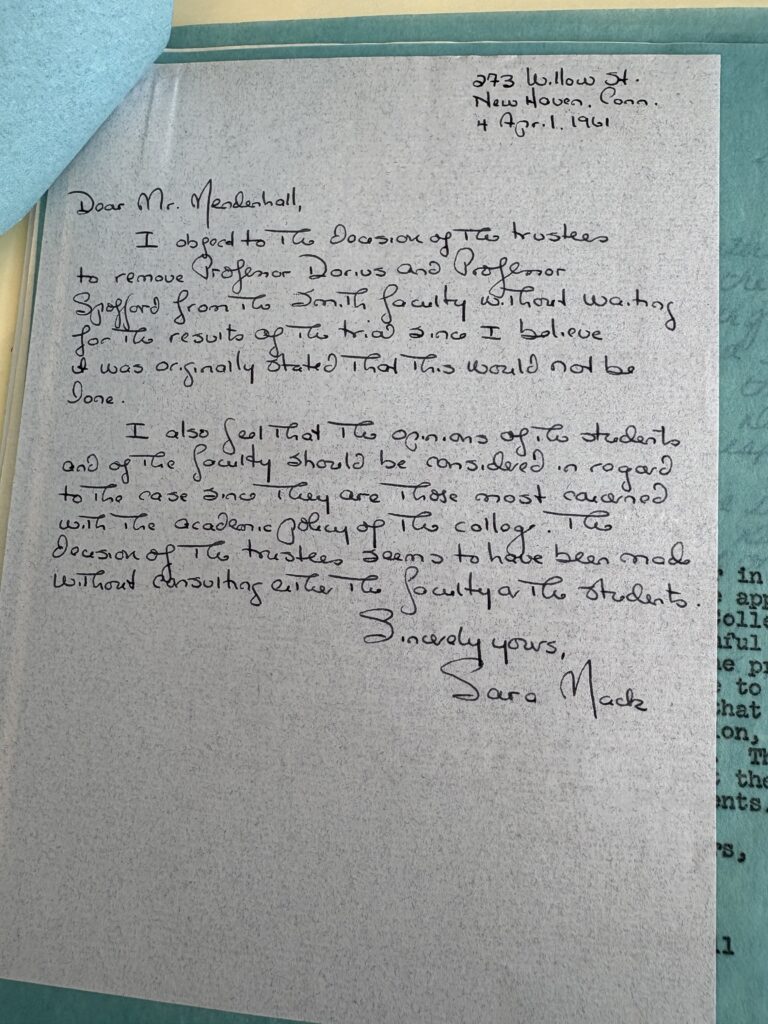 273 Willow St.
New Haven, Conn.
4 April, 1961
Dear Mr. Mendenhall,
I object to the decision of the trustees
to remove Professor Dorius and Professor
Spofford from the Smith faculty without waiting
for the results of the trial since I believe
it was originally stated that this would not be
done.
I also feel that the opinions of the students
and of the faculty should be considered in regard
to the case since they are those most concerned
with the academic policy of the college. The
decision of the trustees seems to have been made
without consulting either the faculty or the students.
Sincerely yours,
Sara Mack
in
to
that
on,
the
ents.
rs,